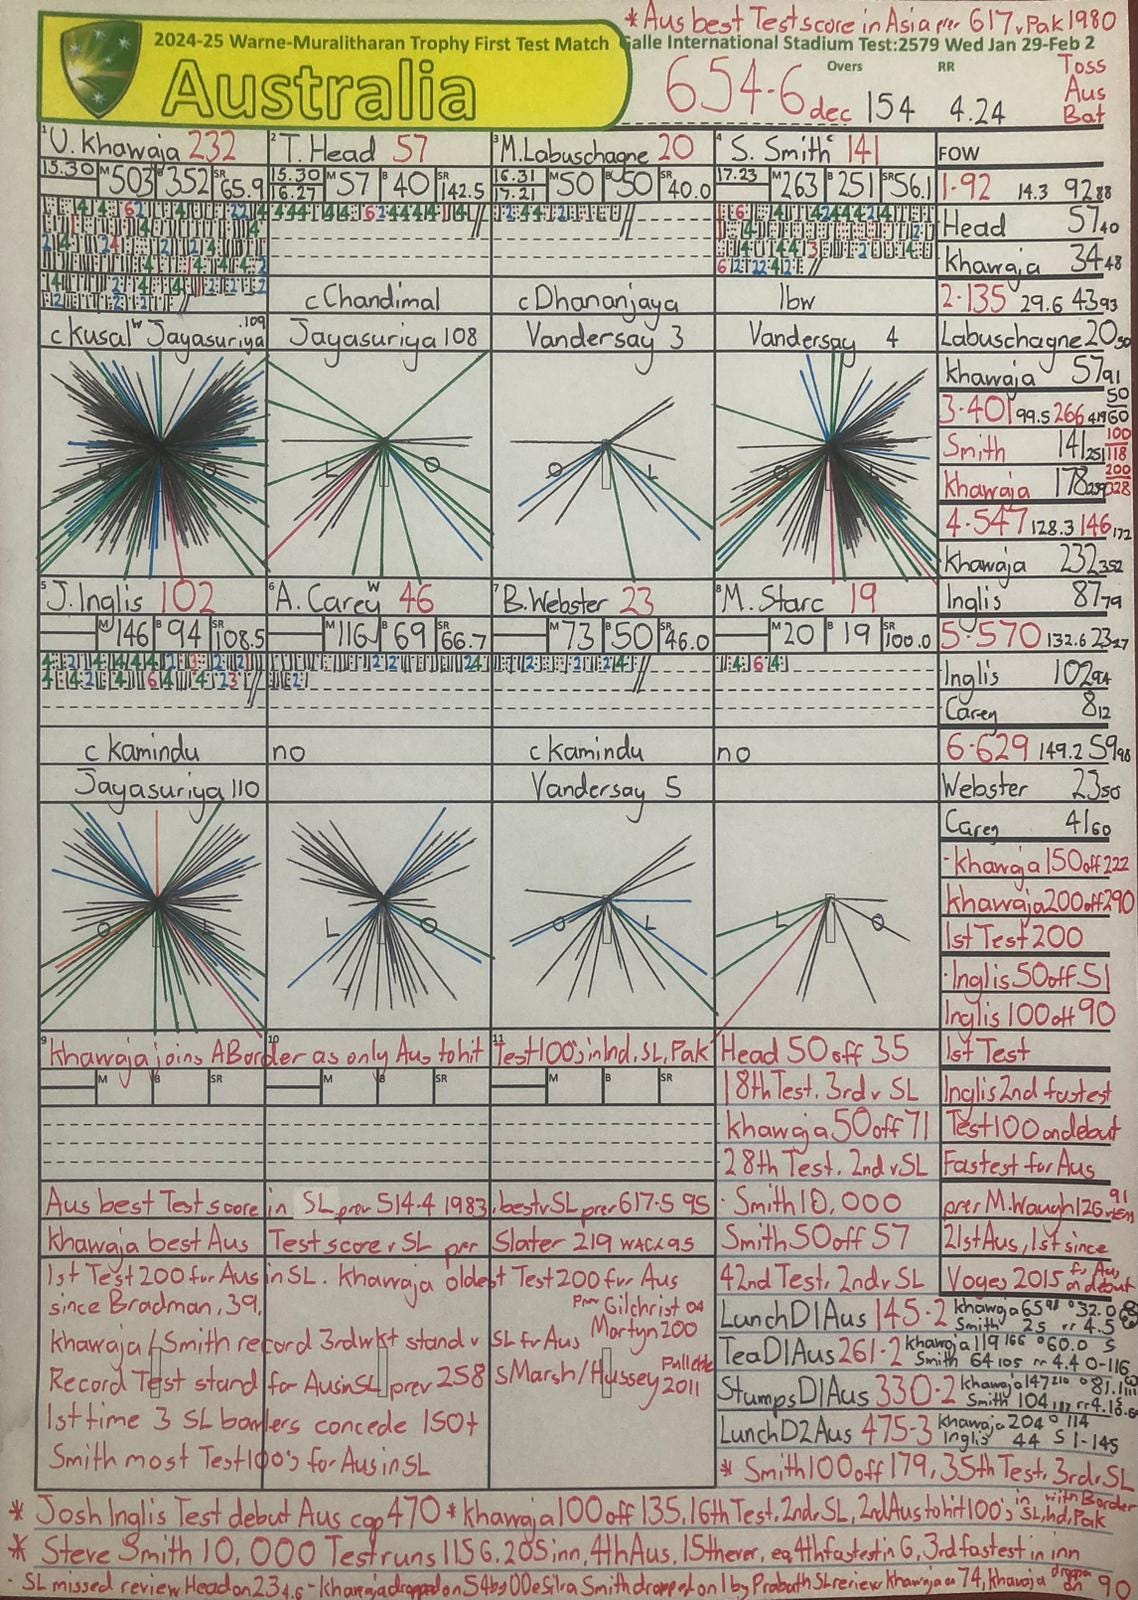 *Aus best Test score in Asia prev 617 v Pak 1980
2024-25 Warne-Muralitharan Trophy First Test Match Galle International Stadium Test:2579 Wed Jan 29-Feb 2
Australia 654-6 dec
Overs 154
RR 4.24
Toss Aus Bat
1 U. Khawaja 232
15.30 M 503 B 352 SR 65.9
c Kusal W Jayasuriya 109
2 T. Head 57
15.30 16.27 M 57 B 40 SR 142.5
c Chandimal
Jayasuriya 108
3 M. Labuschagne 20
16.31 17.21 M 50 B 50 SR 40.0
c Dhananjaya
Vandersay 3
4 S. Smith c 141
17.23 M 263 B 251 SR 56.1
lbw
Vandersay 4
L O
L O
O L
O L
5 J. Inglis 102
M 146 B 94 SR 108.5
c Kamindu
Jayasuriya 110
6 A. Carey W 46
M 116 B 69 SR 66.7
no
7 B. Webster 23
M 73 B 50 SR 46.0
c Kamindu
Vandersay 5
8 M. Starc 19
M 20 B 19 SR 100.0
no
O L
L O
O L
L O
FOW
1-92 14.3 92 88
Head 57 40
Khawaja 34 48
2-135 29.6 43 93
Labuschagne 20 50
Khawaja 57 91
3-401 99.5 266
Smith 141 251
Khawaja 178
4-547 128.3 146 172
Khawaja 232 352
Inglis 87 79
5-570 132.6 23 27
Inglis 102 94
Carey 8 12
6-629 149.2 59 98
Webster 23 50
Carey 41 60
-Khawaja 150 off 222
Khawaja 200 off 290
1st Test 200
-Inglis 50 off 51
Inglis 100 off 90
1st Test
Inglis 2nd fastest
Test 100 on debut
Fastest for Aus
prev M. Waugh 126
21st Aus, 1st since
Voges 2015 for Aus on debut
9 10 11
Khawaja joins A Border as only Aus to hit Test 100's in Ind, SL, Pak
M B SR
M B SR
M B SR
Head 50 off 35
18th Test. 3rd v SL
Khawaja 50 off 71
28th Test. 2nd v SL
-Smith 10,000
Smith 50 off 57
42nd Test, 2nd v SL
Aus best Test score in SL prev 514-4 1983, best v SL prev 617-5 95
Khawaja best Aus Test score v SL prev Slater 219 WACA 95
1st Test 200 for Aus in SL. Khawaja oldest Test 200 for Aus
since Bradman, 39.
Prev Gilchrist 04
Martyn 200
Khawaja/Smith record 3rd wkt stand v SL for Aus
Record Test stand for Aus in SL prev 258 S Marsh/Hussey Pallekele 2011
1st time 3 SL bowlers concede 150+
Smith most Test 100's for Aus in SL
Lunch D1 Aus 145-2 Khawaja 65 98 32.0
Smith 25 rr 4.5
Tea D1 Aus 261-2 Khawaja 119 166 60.0
Smith 64 105 rr 4.4 0-116
Stumps D1 Aus 330-2 Khawaja 147 210 81.1
Smith 104 rr 4.1
Lunch D2 Aus 475-3 Khawaja 204 114
Inglis 44 S 1-145
* Smith 100 off 179, 35th Test, 3rd v SL
* Josh Inglis Test debut Aus cap 470 * Khawaja 100 off 135, 16th Test, 2nd v SL, 2nd Aus to hit 100's in SL, Ind, Pak with Border
* Steve Smith 10,000 Test runs 115 G. 205 inn, 4th Aus, 15th ever, eq 4th fastest in G, 3rd fastest in inn
- SL missed review Head on 23 4.6 - Khawaja dropped on 54 by DDeSilva Smith dropped on 1 by Prabath SL review Khawaja on 74, Khawaja dropped on 90